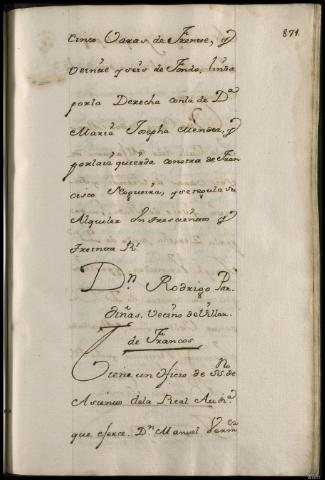 871.
Cinco Varas de Frente, y
veinte y seis de Fondo, linda
por la Derecha con la de D.ª
Maria Josepha Mendez, y
por la izquierda con otra de Fran
cisco Nogueira, y se regula su
Alquiler In trescientos y
treinta R.s
D.n Rodrigo Par
diñas, Vecino de Villar
de Francos
Tiene un oficio de S.no de
Asiento de la Real Aud.a
que eferce D.n Manuel